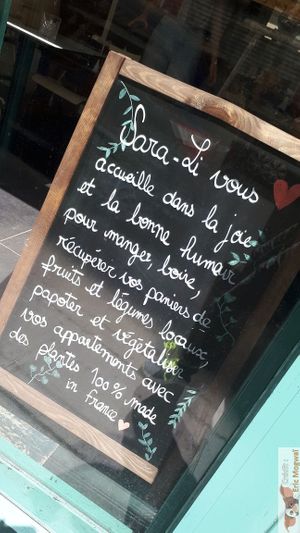 Sara-Li vous
accueille dans la joie
et la bonne humeur
pour manger, boire,
récupérer vos paniers de
fruits et légumes locaux,
papoter et végétaliser
vos appartements avec
des plantes 100% made
in France
Eric Mogwaï